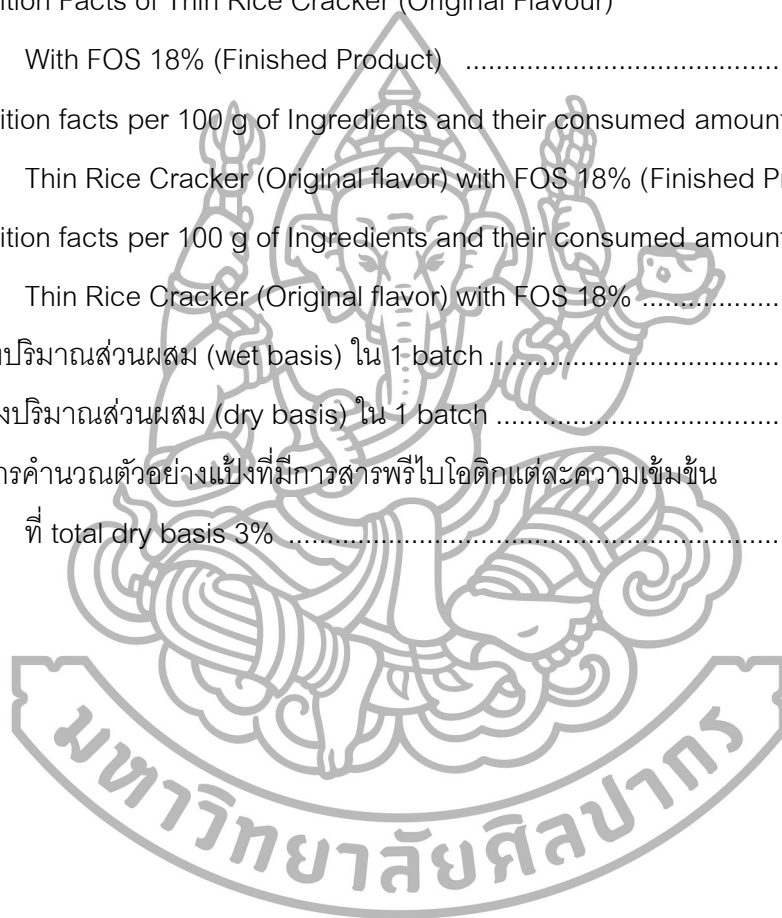 ition Facts of Thin Rice Cracker (Original Flavour)
With FOS 18% (Finished Product) .........................................
ition facts per 100 g of Ingredients and their consumed amount
Thin Rice Cracker (Original flavor) with FOS 18% (Finished P
ition facts per 100 g of Ingredients and their consumed amount
Thin Rice Cracker (Original flavor) with FOS 18% ..................
งปริมาณส่วนผสม (wet basis) ใน 1 batch ......................................
งปริมาณส่วนผสม (dry basis) ใน 1 batch .....................................
ารคำนวณตัวอย่างแป้งที่มีการสารพรีไบโอติกแต่ละความเข้มข้น
ที่ total dry basis 3% ................................................................
มหาวิทยาลัยศิลปากร